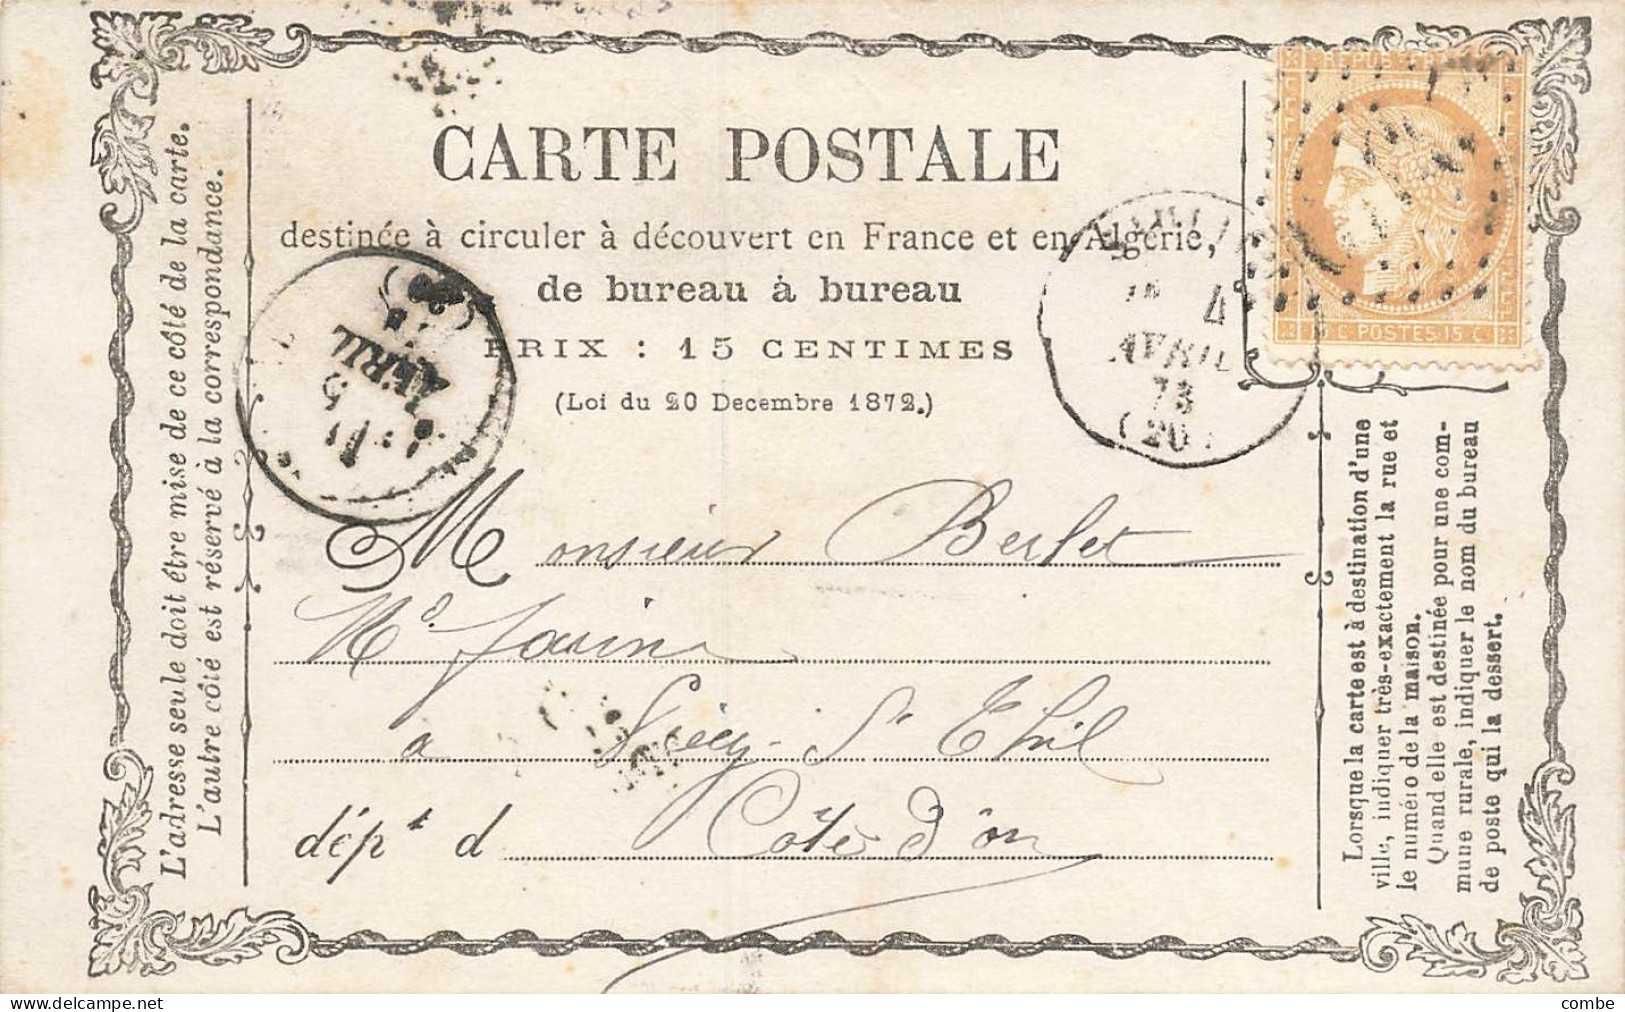 CARTE POSTALE
destinée à circuler à découvert en France et en Algérie,
de bureau à bureau
PRIX : 15 CENTIMES
(Loi du 20 Decembre 1872.)
L'adresse seule doit être mise de ce côté de la carte.
L'autre côté est réservé à la correspondance.
REPUB FR
15 C POSTES 15 C
4
AVRIL
73
(20)
5
AVRIL
Monsieur Berlet
Md farine
a St
dépt d Côtes d'or
Lorsque la carte est à destination d'une
ville, indiquer très-exactement la rue et
le numéro de la maison.
Quand elle est destinée pour une com-
mune rurale, indiquer le nom du bureau
de poste qui la dessert.
www.delcampe.net
combe